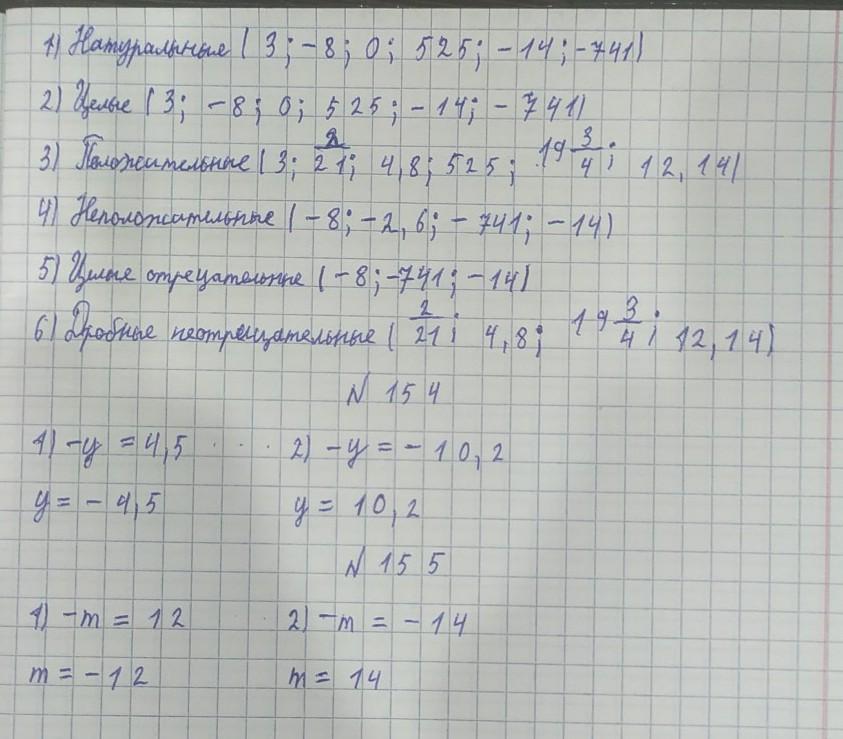 1) Натуральные ( 3; -8; 0; 525; -14; -741)
2) Целые ( 3; -8; 0; 525; -14; -741)
3) Положительные ( 3; 2/21; 4,8; 525; 19 3/4; 12,14)
4) Неположительные ( -8; -2,6; -741; -14)
5) Целые отрецательные ( -8; -741; -14)
6) Дробные неотрецательные ( 2/21; 4,8; 19 3/4; 12,14)
N 154
1) -y = 4,5 2) -y = -10,2
y = -4,5 y = 10,2
N 155
1) -m = 12 2) -m = -14
m = -12 m = 14